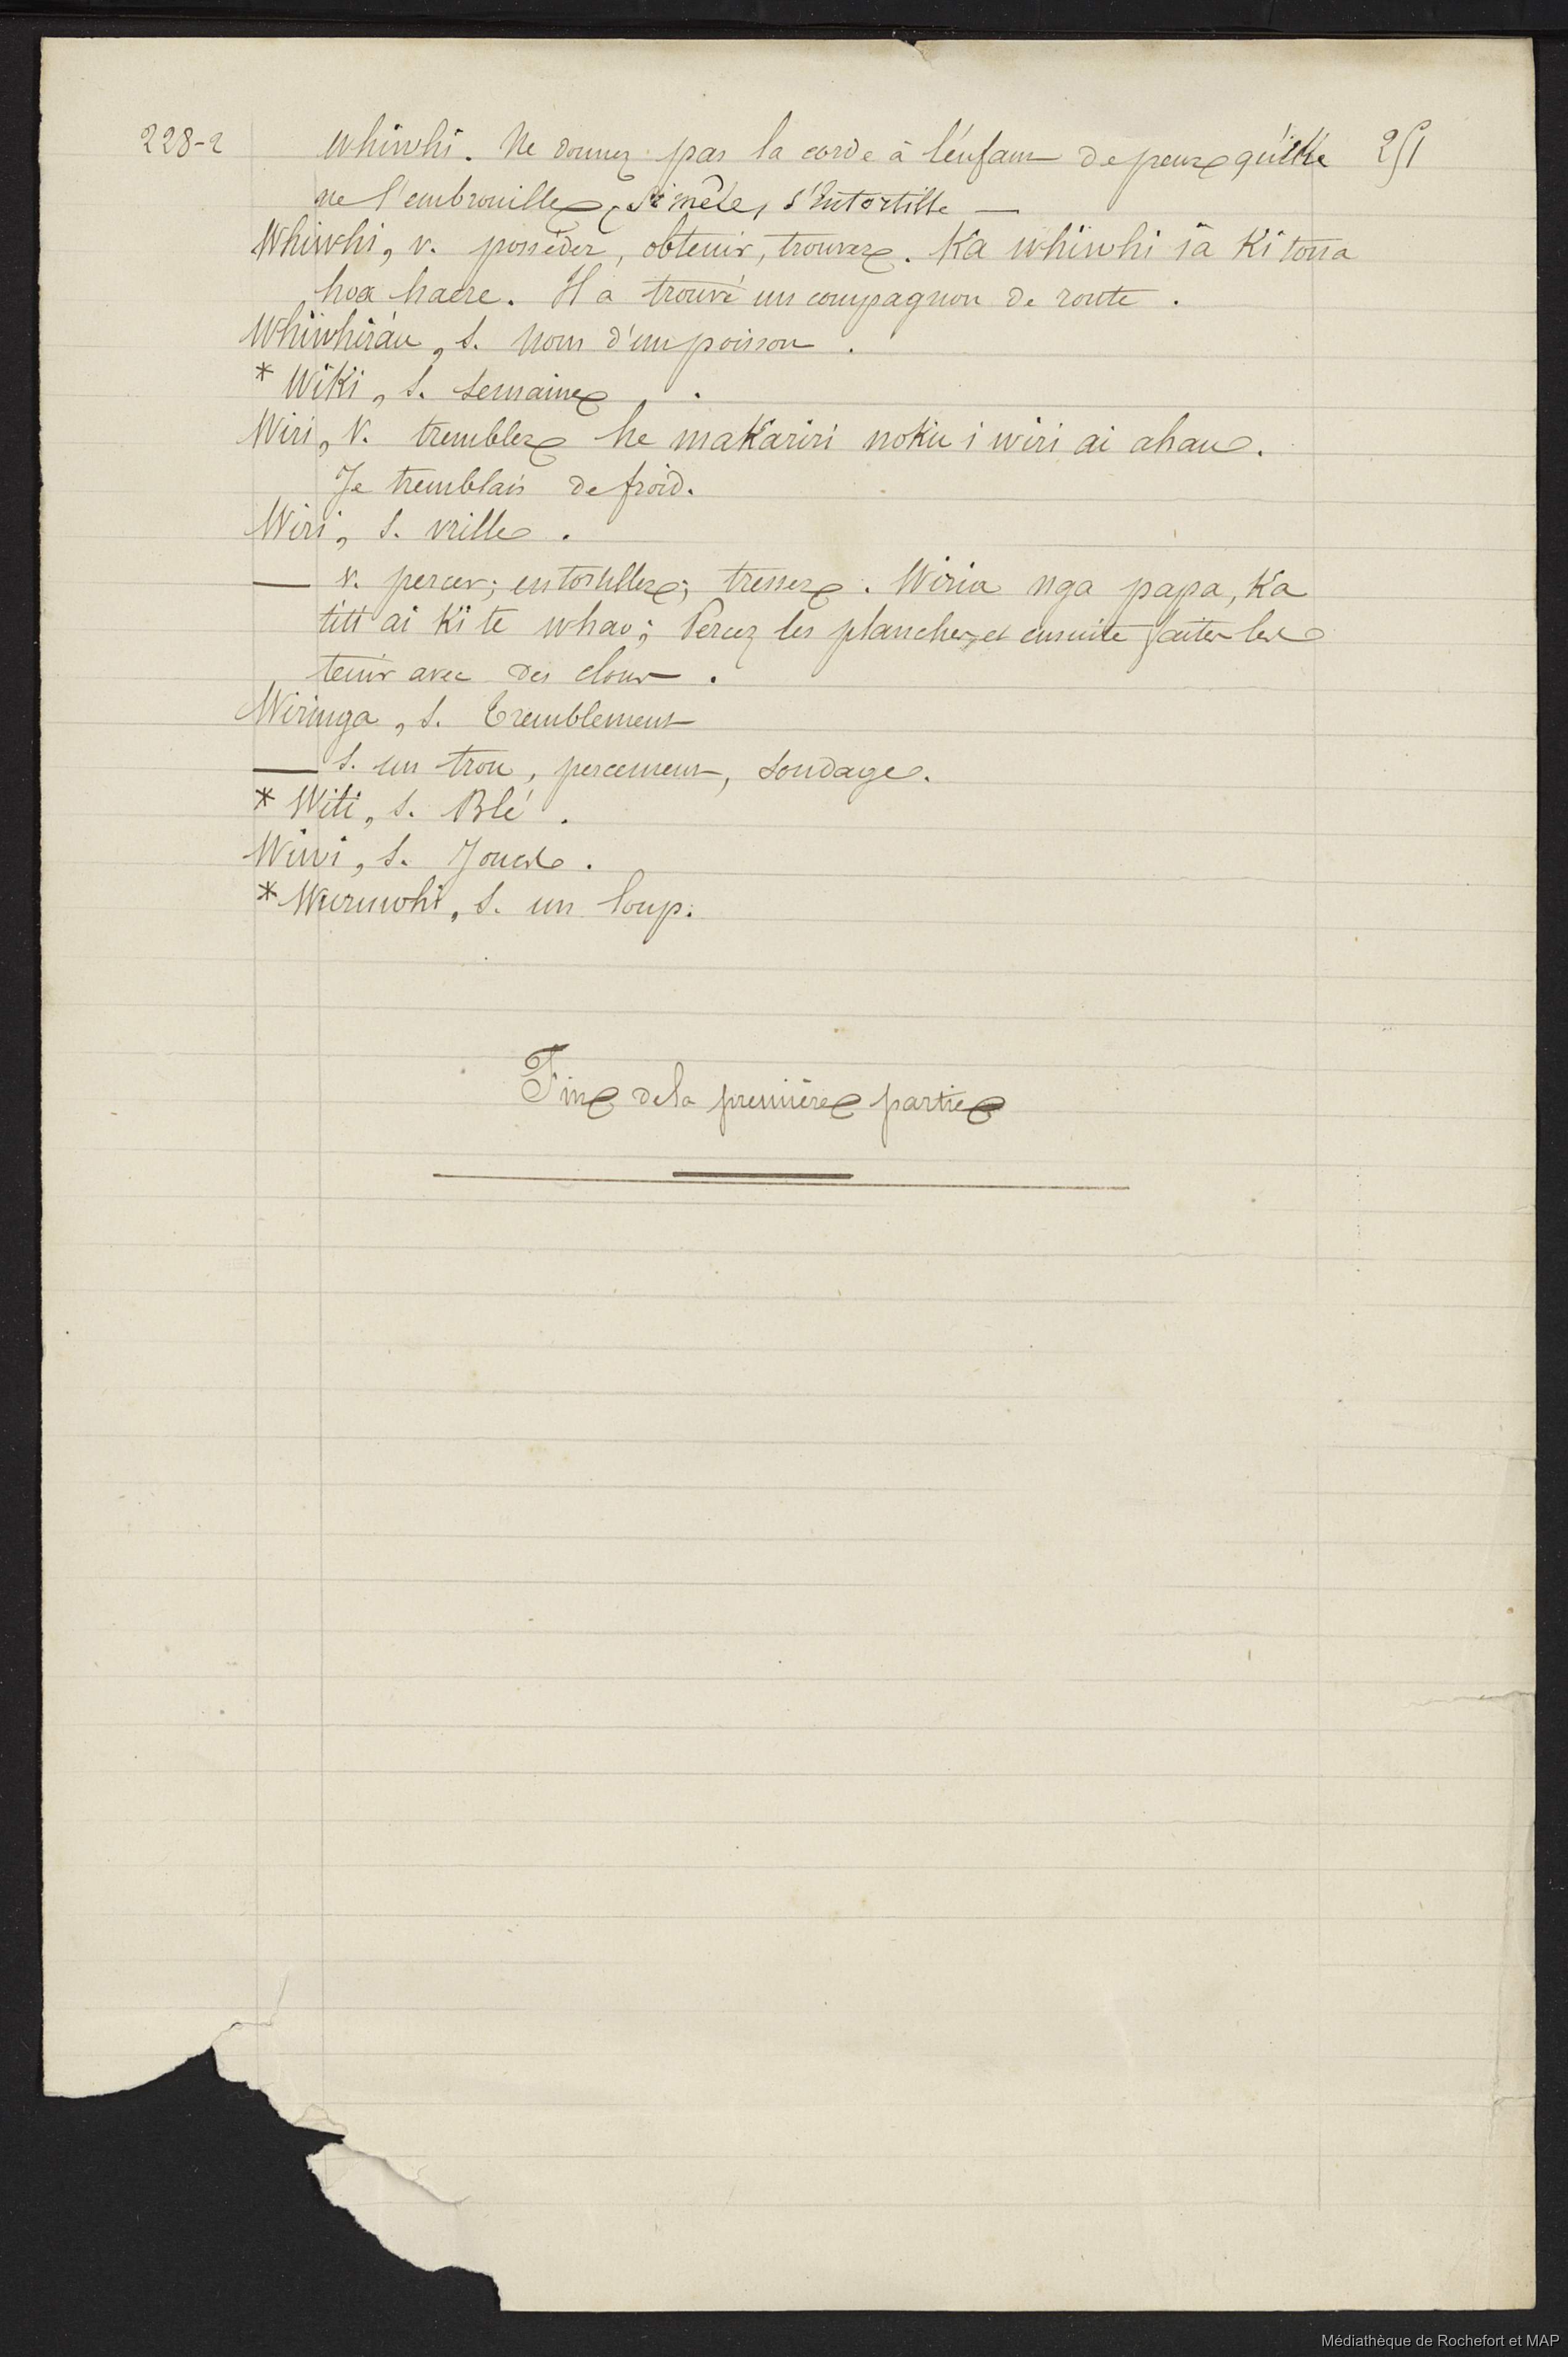 228-2 whiwhi. Ne donnez pas la corde à l'enfant de peur qu'elle 251
ne l'embrouille, se mêle, s'entortille —
Whiwhi, v. posséder, obtenir, trouver. Ka whiwhi ia ki tona
hoa haere. Il a trouvé un compagnon de route.
Whiwhirau, s. nom d'un poisson.
* Wiki, s. semaine.
Wiri, v. trembler he makariri noku i wiri ai ahau.
Je tremblais de froid.
Wiri, s. vrille.
— v. percer; entortiller; tresser. Wiria nga papa, ka
titi ai ki te whao; Percez les planches, et ensuite faites les
tenir avec des clous.
Wiringa, s. Tremblement
— s. un trou, percement, sondage.
* Witi, s. Blé.
Wiwi, s. Joncs.
* Wuruwhi, s. un loup.
Fin de la première partie
Médiathèque de Rochefort et MAP